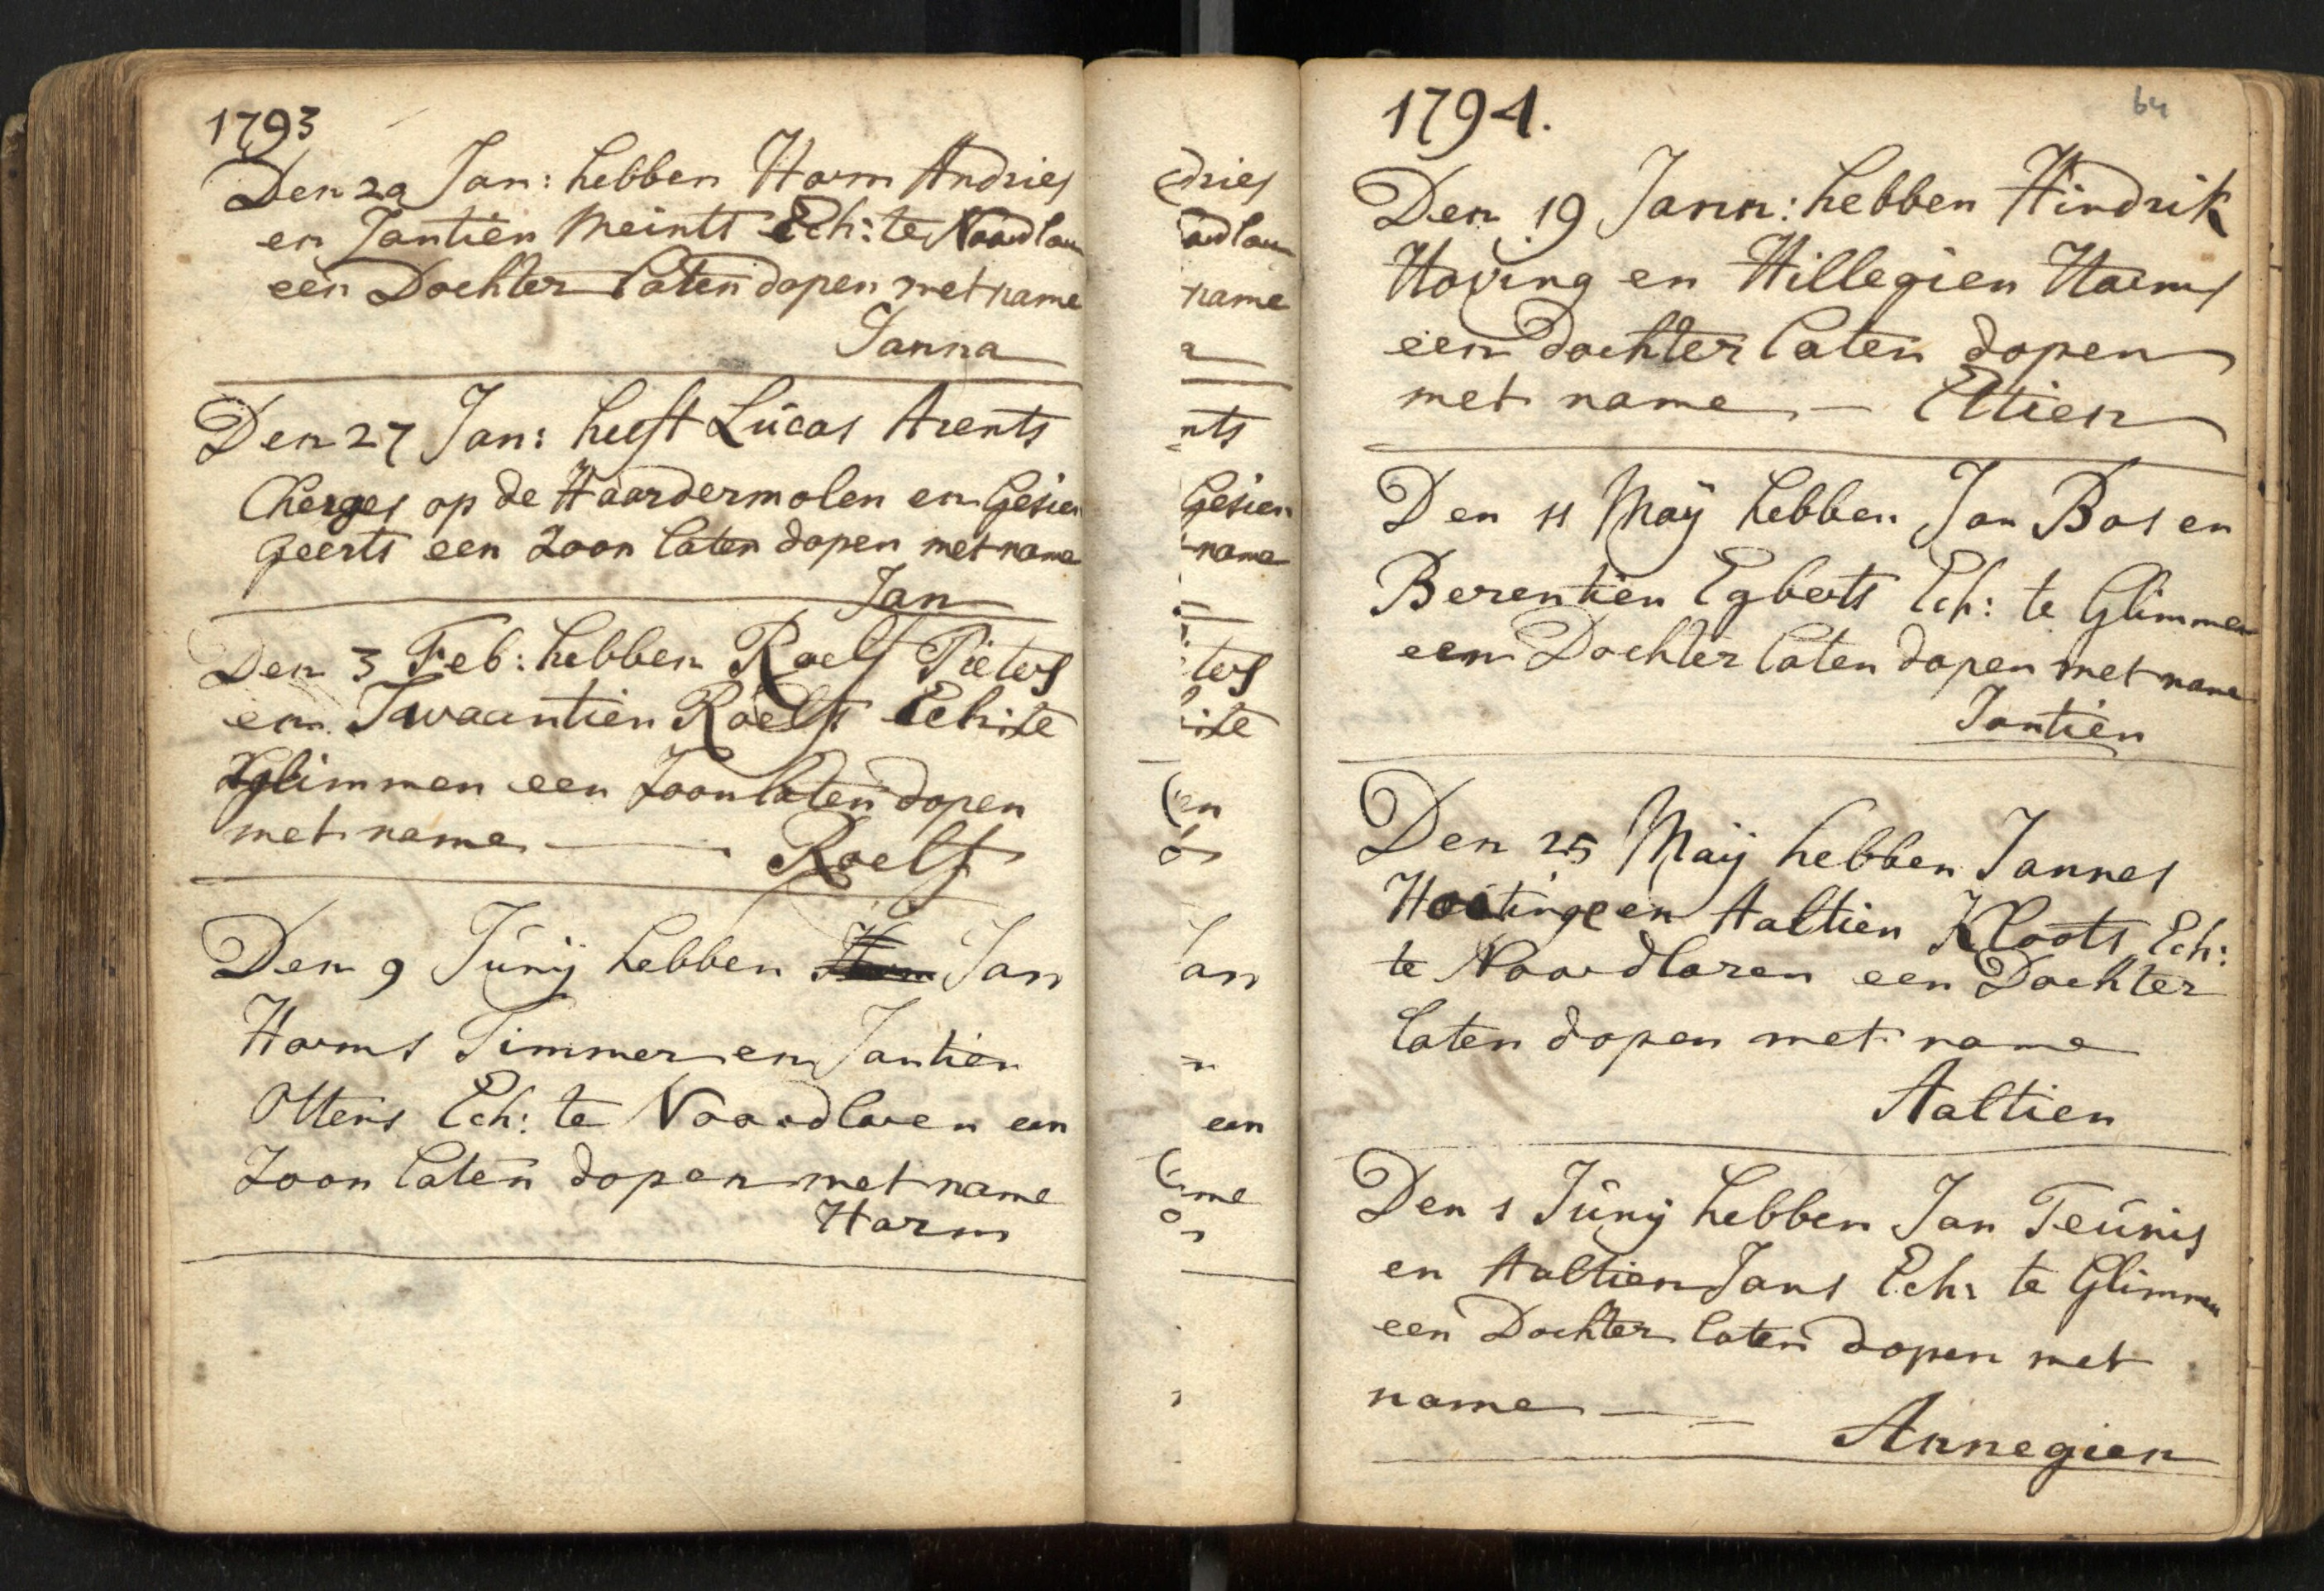 1793
Den 20 Jan: hebben Harm Andries
en Jantien Meints Ech: te Noordlaren
een Dochter laten dopen met name
Janna
Den 27 Jan: heeft Lucas Arents
op de Haardermolen en Gesien
geerts een Zoon laten dopen met name
Jan
Den 3 Feb: hebben Roelf Pieters
en Swaantien Roelfs Ech: te
Glimmen een Zoon laten dopen
met name — Roelf
Den 9 Junij hebben Jan
Harms Timmer en Jantien
Ottens Ech: te Noordlaren een
Zoon laten dopen met name
Harm
dries
name
a
nts
Gesien
name
ters
te
en
Jan
n
een
me
64
1794.
Den 19 Jann: hebben Hindrik
Hoving en Hillegien Harms
een dochter laten dopen
met name — Eltien
Den 11 Maij hebben Jan Bos en
Berentien Egberts Ech: te Glimmen
een Dochter laten dopen met name
Jantien
Den 25 Maij hebben Jannes
Hoitinge en Aaltien Kloots Ech:
te Noordlaren een Dochter
laten dopen met name
Aaltien
Den 1 Junij hebben Jan Teunis
en Aaltien Jans Ech: te Glimmen
een Dochter laten dopen met
name —
Annegien